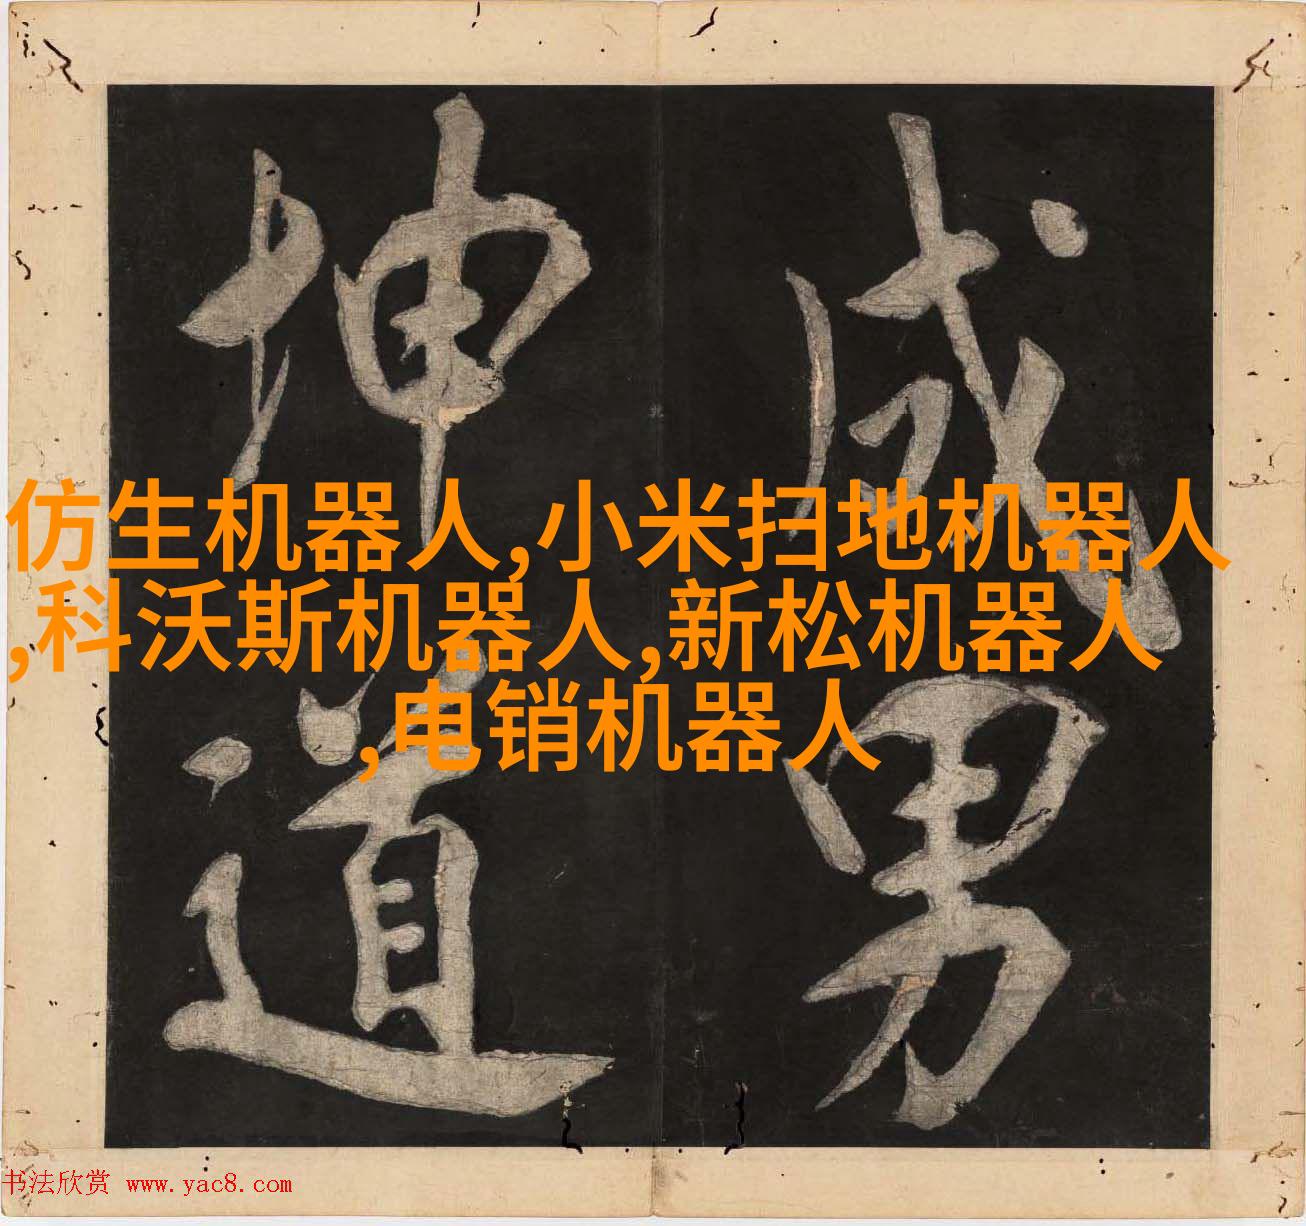 成男
坤道
仿生机器人,小米扫地机器人
,科沃斯机器人,新松机器人
,电销机器人
书法欣赏 www.yac8.com